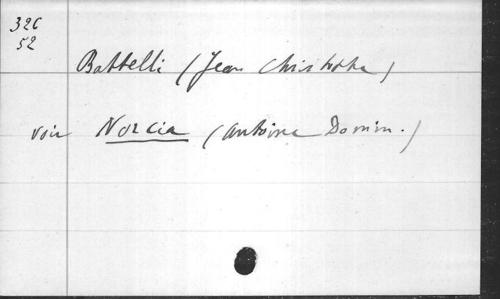 326
52
Battelli (Jean Christophe)
voir Norcia (Antoine Domin.)